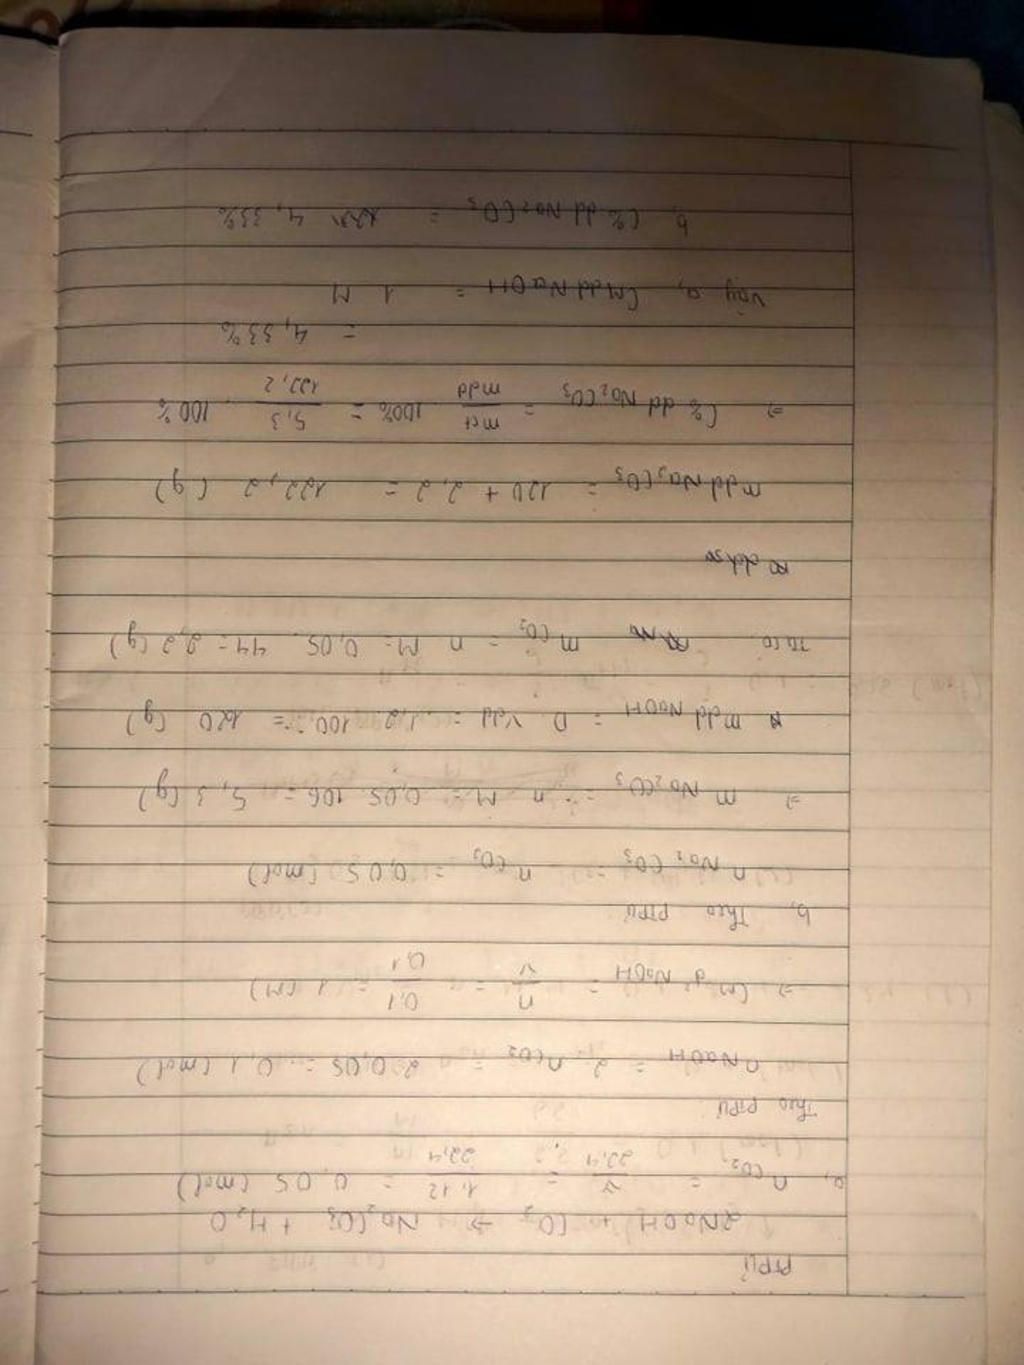 PTPƯ
2NaOH + CO2 → Na2CO3 + H2O
a, nCO2 = V/22,4 = 1,12/22,4 = 0,05 (mol)
Theo PTPƯ
nNaOH = 2. nCO2 = 2 0,05 = 0,1 (mol)
⇒ CM NaOH = n/V = 0,1/0,1 = 1 (M)
b, Theo PTPƯ
nNa2CO3 = nCO2 = 0,05 (mol)
⇒ mNa2CO3 = n. M = 0,05. 106 = 5,3 (g)
mdd NaOH = D. Vdd = 1,2. 100 = 120 (g)
Ta có mCO2 = n. M = 0,05. 44 = 2,2 (g)
mdd Na2CO3 = 120 + 2,2 = 122,2 (g)
⇒ C% dd Na2CO3 = mct/mdd . 100% = 5,3/122,2 . 100%
= 4,33%
Vậy a, CM dd NaOH = 1 M
b, C% dd Na2CO3 = 4,33%